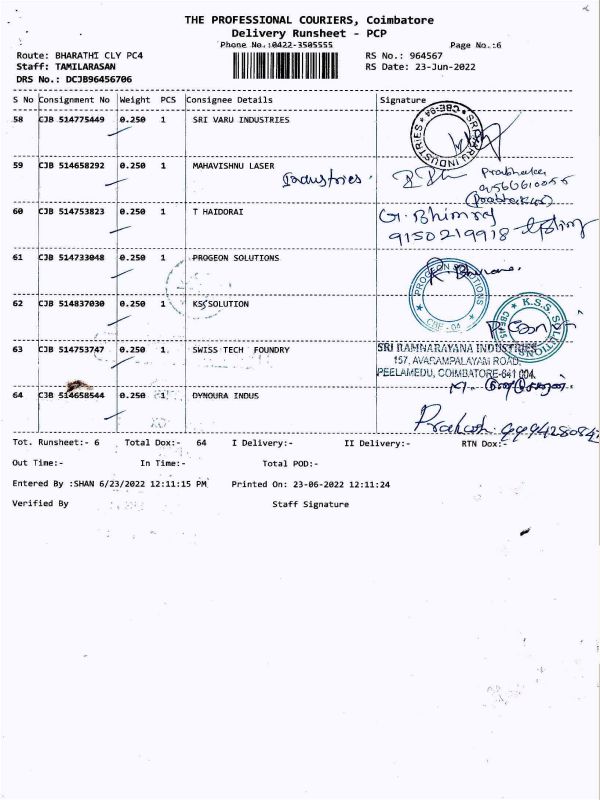 THE PROFESSIONAL COURIERS, Coimbatore
Delivery Runsheet - PCP
Phone No.:0422-3505555
Page No.:6
Route: BHARATHI CLY PC4
RS No.: 964567
Staff: TAMILARASAN
RS Date: 23-Jun-2022
DRS No.: DCJB96456706
S No Consignment No Weight PCS Consignee Details Signature
58 CJB 514775449 0.250 1 SRI VARU INDUSTRIES
59 CJB 514658292 0.250 1 MAHAVISHNU LASER
Industries.
Prabhakar
(Prabhakar)
60 CJB 514753823 0.250 1 T HAIDORAI
G. Bhimraj
9150219918
61 CJB 514733048 0.250 1 PROGEON SOLUTIONS
PROGEON SOLUTIONS
CBE - 04
62 CJB 514837030 0.250 1 KSSSOLUTION
K.S.S. SOLUTIONS
63 CJB 514753747 0.250 1 SWISS TECH FOUNDRY
SRI RAMNARAYANA INDUSTRIES
157, AVARAMPALAYAM ROAD,
PEELAMEDU, COIMBATORE-641 004.
64 CJB 514658544 0.250 1 DYNOURA INDUS
Prakash.
Tot. Runsheet:- 6 Total Dox:- 64 I Delivery:- II Delivery:- RTN Dox:-
Out Time:- In Time:- Total POD:-
Entered By :SHAN 6/23/2022 12:11:15 PM Printed On: 23-06-2022 12:11:24
Verified By Staff Signature